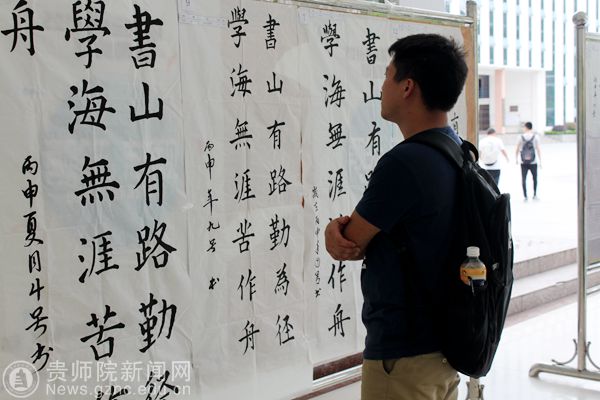 書山有
學海無涯作舟
書山有路勤為徑
學海無涯苦作舟
丙申年九号 书
書山有路勤
學海無涯苦
舟
丙申夏月斗号书
贵师院新闻网
News.gznc.edu.cn